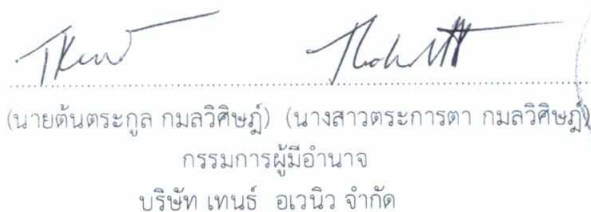 (นายต้นตระกูล กมลวิศิษฎ์) (นางสาวตระการตา กมลวิศิษฎ์)
กรรมการผู้มีอำนาจ
บริษัท เทนธ์ อเวนิว จำกัด